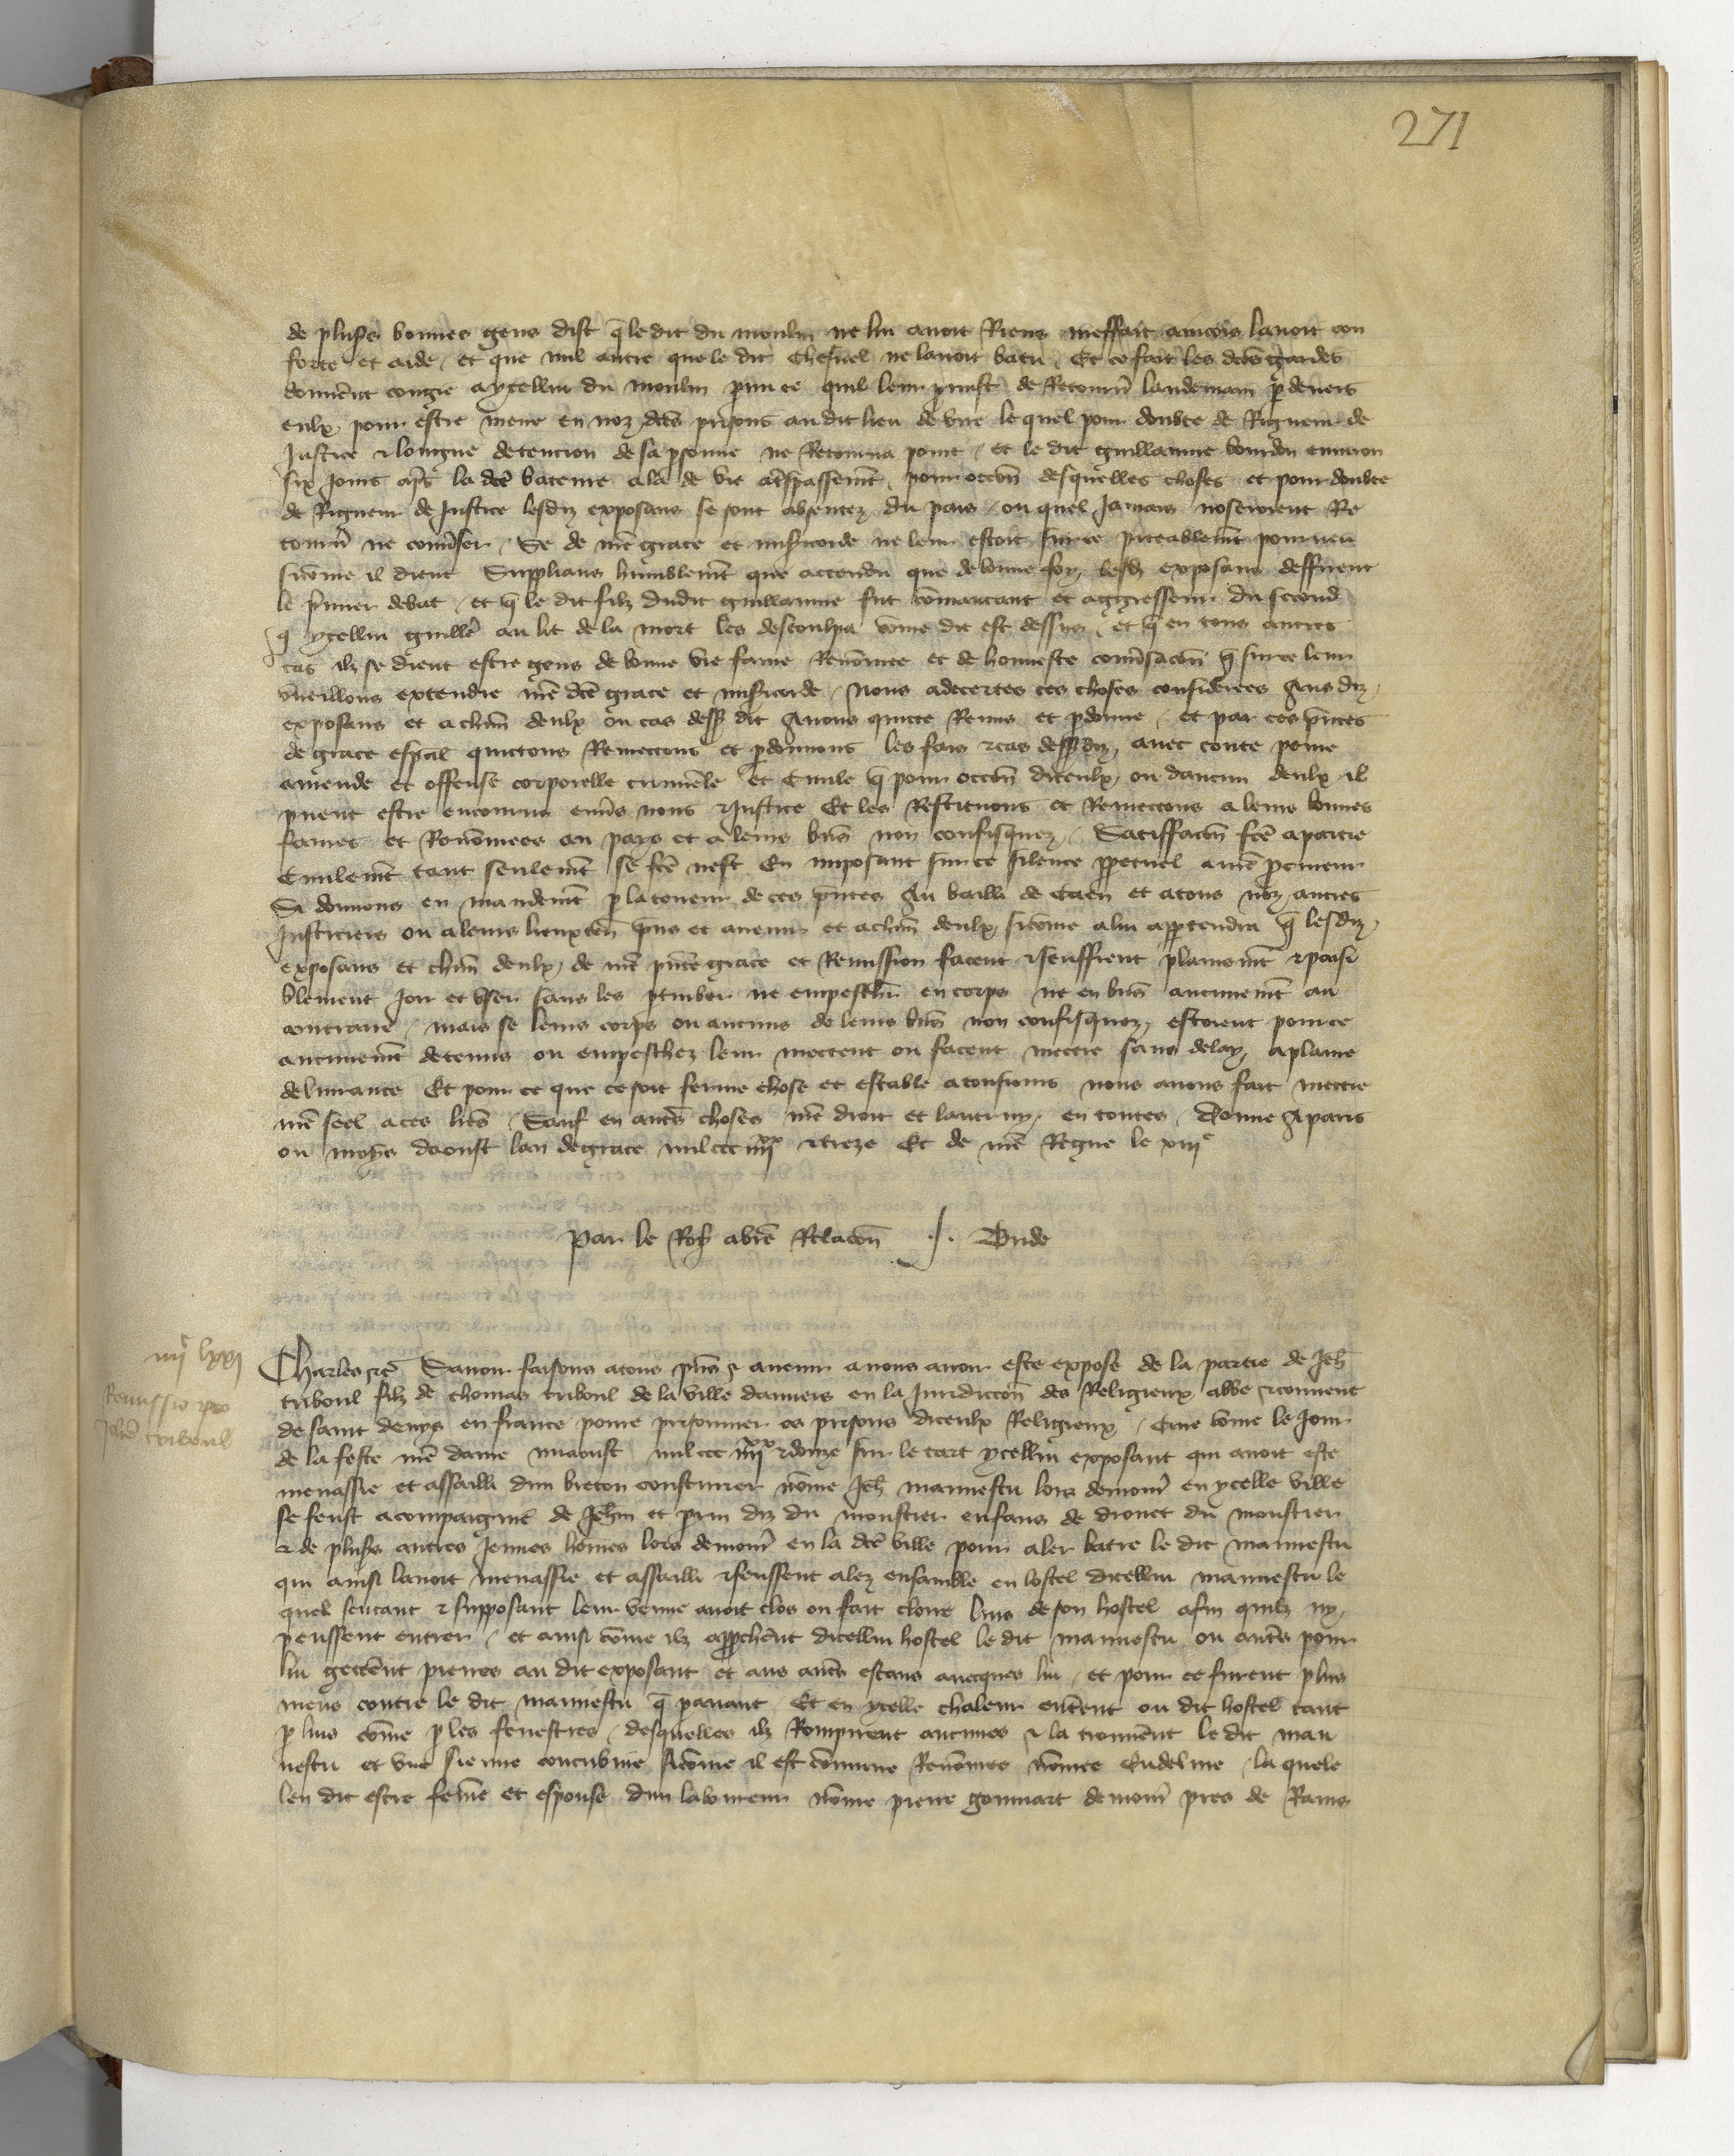 271
de plus̉s bonnes gens dist q̄ le dit du moulin ne lui auoit Riens meffait aincois lauoit con
forte et aide / et que nul autre que le dit Chesnel ne lauoit batu / Et ce fait les dc̄es gardes
donnerēt congie a ycellui du moulin parmi ce quil leur pmist de Retournr̄ landemain p deuers
eulx pour estre mene en noz dc̄es prisons au dit lieu de vire le quel pour doubte de Rigueur de
Justice & longue detencion de sa psonne ne Retourna point / et le dit guillaume bourdon enuiron
six Jours apr̄s la dc̄e bateure ala de vie a tr̄spassemēt / pour occōn desquelles choses et pour doubte
de Rigueur de Justice lesdiz exposans se sont absentez du pais / ou quel Jamais noseroient Re
tournr̄ ne conūser / Se de nr̄e grace et misīcorde ne leur estoit sur ce piteablemēt pourueu
sicōme il dient Supplians humblemēt que attendu que de bonne foy lesdiz exposans deffirent
le p̄mier debat / et q̄ le dit filz dudit guillaume fut cōmancant et aggresseur du second
q̄ ycellui guillē au lit de la mort les descoulpa cōme dit est dessus / et q̄ en tous autres
cas ilz se dient estre gens de bonne vie fame Renōmee et de honneste conūsacōn q̄ sur ce leur
vueillons extendre nr̄e dc̄e grace et misīcorde / Nous adecertes ces choses considerees Aus diz
exposans et a chūn deulx ou cas dess9 dit Auons quicte Remis et pdonne / et par ces p̄ntes
de grace esp̄al quictons Remectons et pdonnons les fais & cas dess9diz auec toute peine
amende et offense corporelle criminēle et Ciuile q̄ pour occōn diceulx ou daucun deulx il
peuent estre encourus enūs nous & Justice Et les Restituons et Remectons a leurs bonnes
fames et Renōmees au pays et a leurs biēs non confisquez / Satiffacōn fc̄e a partie
Ciuilemēt tant seulemēt se fc̄e nest En imposant sur ce silence ppetuel a nr̄e pcureur
Si donnons en mandemēt p la teneur de ces p̄ntes Au bailli de Caen et a tous noz autres
Justiciers ou a leurs lieuxten̄ p̄ns et auenir et a chūn deulx sicōme a lui apptendra q̄ lesdiz
exposans et chūn deulx de nr̄e p̄nte grace et Remission facent & seuffrent plainemēt & paisi
blement Joir et vser sans les pturber ne empeschr̄ en corps ne en biēs aucunemēt au
contraire / mais se leurs corps ou aucuns de leurs biēs non confisquez estoient pour ce
aucunemēt detenus ou empeschez leur mectent ou facent mectre sans delay a plaine
deliurance Et pour ce que ce soit ferme chose et estable a tousiours nous auons fait mectre
nr̄e seel a ces lr̄es / Sauf en autr̄s choses nr̄e droit et lautruy en toutes / Donne A paris
ou moys daoust lan de grace mil ccc iiiixx & treze Et de nr̄e Regne le xiiie
Par le Roy a vr̄e Relacōn .J. Bude
iiiic lxxi
Remissio pro
Johē triboul
Charles &c̄ Sauoir faisons a tous p̄ns & auenir a nous auoir este expose de la partie de Jeh̄
triboul filz de thomas triboul de la ville dauuers en la Juridiccōn des Religieux abbe & conuent
de saint denys en france poure prisonnier es prisons diceulx Religieux / Que cōme le Jour
de la feste nr̄e dame miaoust mil ccc iiiixx & douze sur le tart ycellui exposant qui auoit este
menassie et assailli dun breton cousturier nōme Jeh̄ mannestu lors demour̄ en ycelle ville
se feust acompaignie de Jehn̄ et prin diz du monstier enfans de drouet du monstier
& de plus̉s autres Jeunes hōmes lors demour̄ en la dc̄e ville pour aler batre le dit mannestu
qui ainsi lauoit menassie et assailli & feussent alez ensamble en lostel dicellui mannestu le
quel sentant & supposant leur venue auoit clos ou fait clorre luis de son hostel afin quilz ny
peussent entrer / et ainsi cōme ilz approcherēt dicellui hostel le dit mannestu ou autr̄s pour
lui gecterēt pierres au dit exposant et aus autr̄s estans auecques lui / et pour ce furent plus
meus contre le dit mannestu q̄ pauant Et en ycelle chaleur entrerēt ou dit hostel tant
p luis cōme p les fenestres / desquelles ilz Rompirent aucunes & la trouuerēt le dit man
nestu et vne sienne concubine sicōme il est cōmune Renōmee nōmee Eudeline / la quele
len dit estre feme et espouse dun laboureur nōme pierre gonnart demour̄ pres de Rains